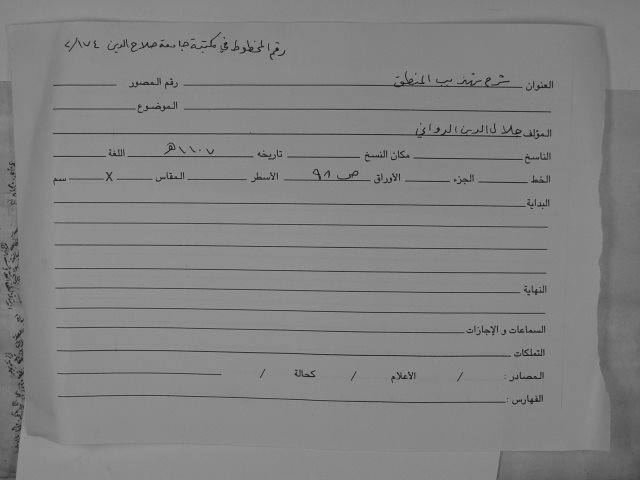 رقم المخطوط في مكتبة جامعة صلاح الدين ٧/١٧٤
العنوان شرح تهذيب المنطق رقم المصور
الموضوع
المؤلف جلال الدين الدواني
الناسخ مكان النسخ تاريخه ١١٠٧هـ اللغة
الخط الجزء الأوراق ٩٨ ص الأسطر المقاس X سم
البداية
النهاية
السماعات و الإجازات
التملكات
المصادر : / الأعلام / كحالة /
الفهارس :